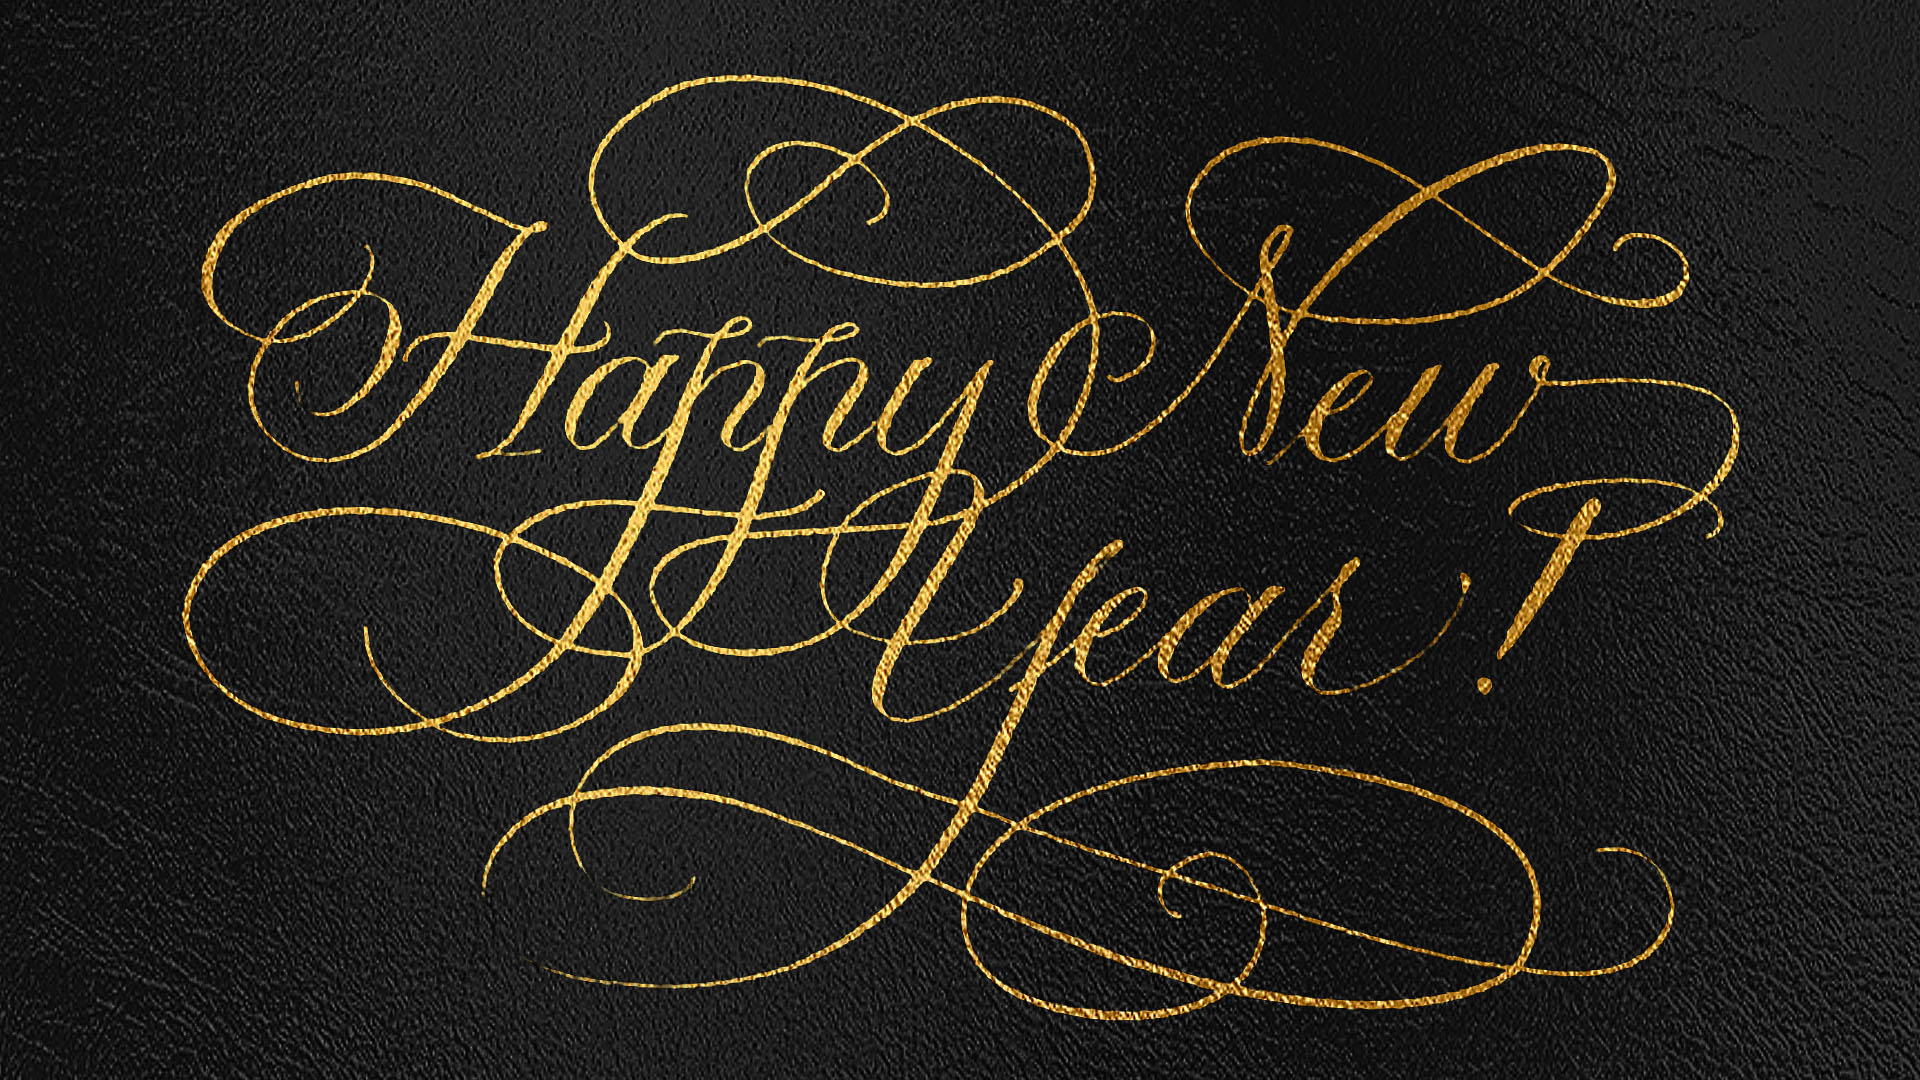 Happy New
Year!